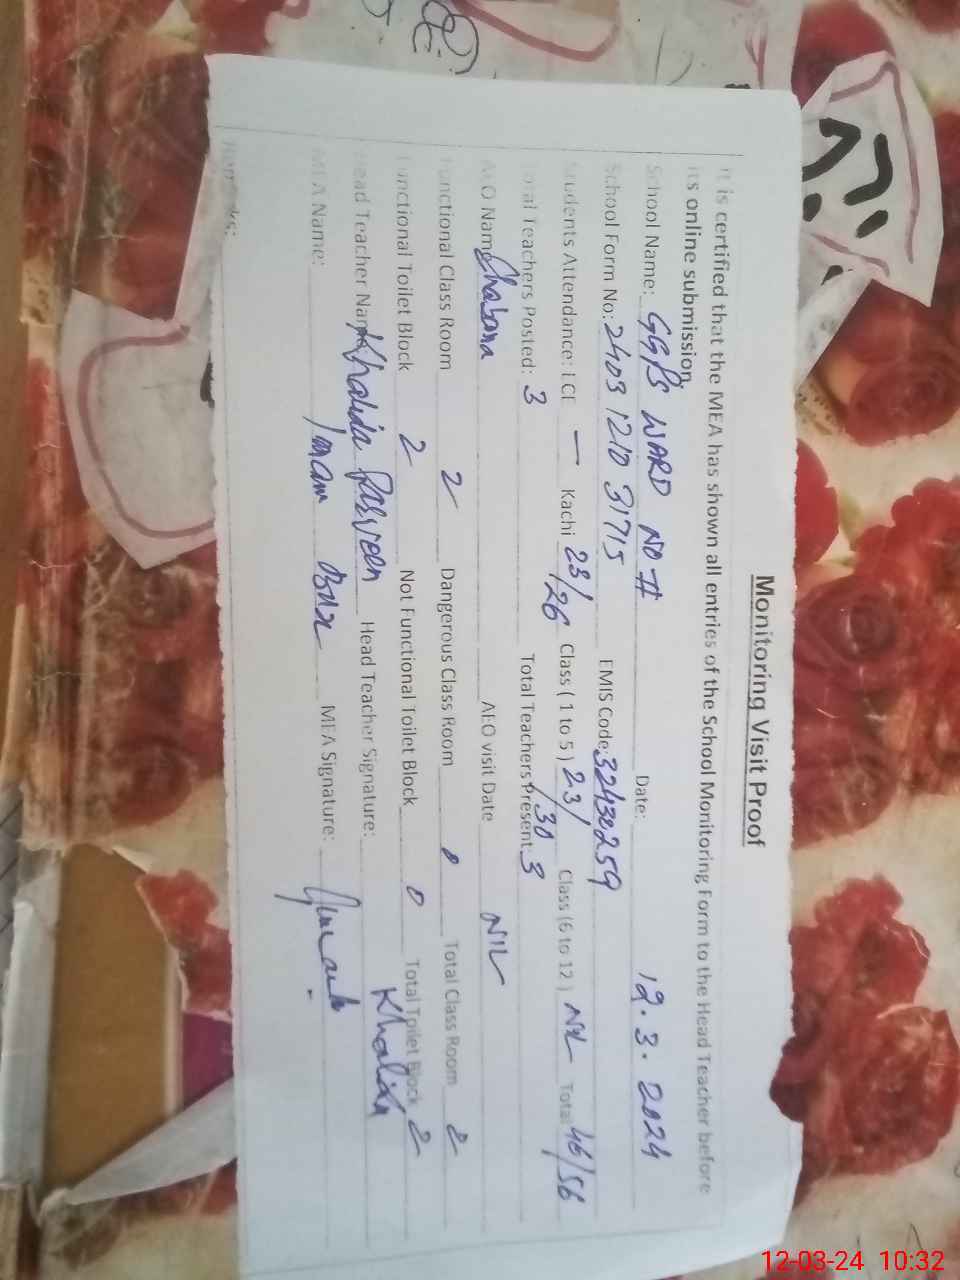 Monitoring Visit Proof
It is certified that the MEA has shown all entries of the School Monitoring Form to the Head Teacher before
its online submission.
School Name: GGPS WARD NO # Date: 12.3.2024
School Form No: 2403 1210 31715 EMIS Code: 32430259
Students Attendance: ECE — Kachi 23/26 Class ( 1 to 5 ) 23/30 Class (6 to 12 ) NIL Total 46/56
Total Teachers Posted: 3 Total Teachers Present: 3
AEO Name Shabana AEO visit Date NIL
Functional Class Room 2 Dangerous Class Room 0 Total Class Room 2
Functional Toilet Block 2 Not Functional Toilet Block 0 Total Toilet Block 2
Head Teacher Name Khalida Parveen Head Teacher Signature: Khalida
MEA Name: Imam Bux MEA Signature:
Remarks:
12-03-24 10:32